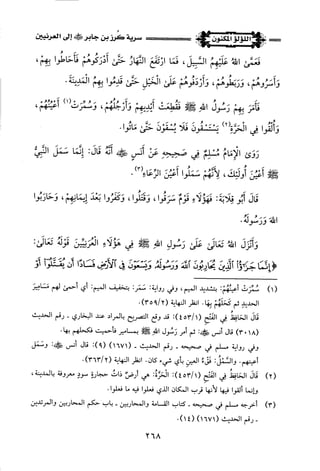 اللؤلؤ المكنون
سرية كرز بن جابر ﷺ إلى العرنيين
فَعَمَّى اللهُ عَلَيْهِمُ السَّبِيلَ، فَمَا ارْتَفَعَ النَّهَارُ حَتَّى أَدْرَكُوهُمْ فَأَحَاطُوا بِهِمْ،
وَأَسَرُوهُمْ، وَرَبَطُوهُمْ، وَأَرْدَفُوهُمْ عَلَى الْخَيْلِ حَتَّى قَدِمُوا بِهِمُ الْمَدِينَةَ.
فَأَمَرَ بِهِمْ رَسُولُ اللهِ ﷺ فَقُطِعَتْ أَيْدِيهِمْ وَأَرْجُلُهُمْ، وَسُمِّرَتْ (١) أَعْيُنُهُمْ،
وَأُلْقُوا فِي الْحَرَّةِ (٢) يَسْتَسْقُونَ فَلَا يُسْقَوْنَ حَتَّى مَاتُوا.
رَوَى الْإِمَامُ مُسْلِمٌ فِي صَحِيحِهِ عَنْ أَنَسٍ ﷺ أَنَّهُ قَالَ: إِنَّمَا سَمَلَ النَّبِيُّ
ﷺ أَعْيُنَ أُولَئِكَ، لِأَنَّهُمْ سَمَلُوا أَعْيُنَ الرِّعَاءِ (٣).
قَالَ أَبُو قِلَابَةَ: فَهَؤُلَاءِ قَوْمٌ سَرَقُوا، وَقَتَلُوا، وَكَفَرُوا بَعْدَ إِيمَانِهِمْ، وَحَارَبُوا
اللهَ وَرَسُولَهُ.
وَأَنْزَلَ اللهُ تَعَالَى عَلَى رَسُولِ اللهِ ﷺ فِي هَؤُلَاءِ الْعُرَنِيِّينَ قَوْلَهُ تَعَالَى:
﴿إِنَّمَا جَزَٰٓؤُا۟ ٱلَّذِينَ يُحَارِبُونَ ٱللَّهَ وَرَسُولَهُۥ وَيَسْعَوْنَ فِى ٱلْأَرْضِ فَسَادًا أَن يُقَتَّلُوٓا۟ أَوْ
(١) سُمِّرَتْ أعينُهُمْ: بتشديد الميم، وفي رواية: سَمَرَ: بتخفيف الميم: أي أحمى لهم مَسَامِيرَ
الحديد ثم كَحَّلَهُمْ بِهَا. انظر النهاية (٣٥٩/٢)
قَالَ الحَافِظُ في الفَتْحِ (٤٥٣/١): قد وقع التصريح بالمراد عند البخاري - رقم الحديث
(٣٠١٨) قال أنس ﷺ: ثم أمر رسول الله ﷺ بمسامير فأحميت فكحلهم بها.
وفي رواية مسلم في صحيحه - رقم الحديث (١٦٧١) (٩): قال أنس ﷺ: وسَمَل
أعينهم. والسَّمْلُ: فَقْءُ العين بأي شيء كان. انظر النهاية (٣٦٣/٢)
(٢) قَالَ الحَافِظُ في الفَتْحِ (٤٥٣/١): الحَرَّةُ: هي أرضٌ ذاتُ حجارةٍ سودٍ معروفة بالمدينة،
وإنما ألقوا فيها لأنها قرب المكان الذي فعلوا فيه ما فعلوا.
(٣) أخرجه مسلم في صحيحه - كتاب القسامة والمحاربين - باب حكم المحاربين والمرتدين
- رقم الحديث (١٦٧١) (١٤).
٢٦٨